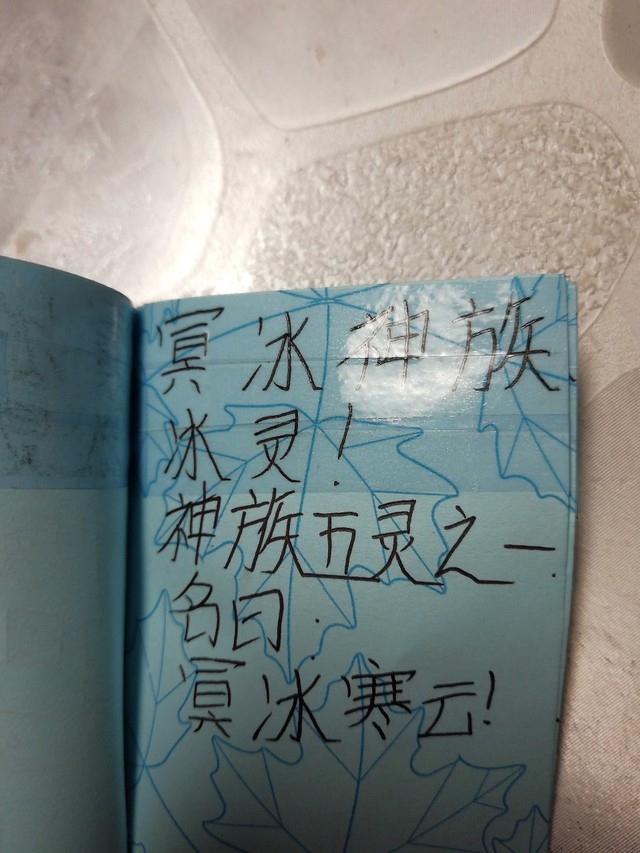 冥冰神族、
冰灵！
神族五灵之一.
名曰.
冥冰寒云！